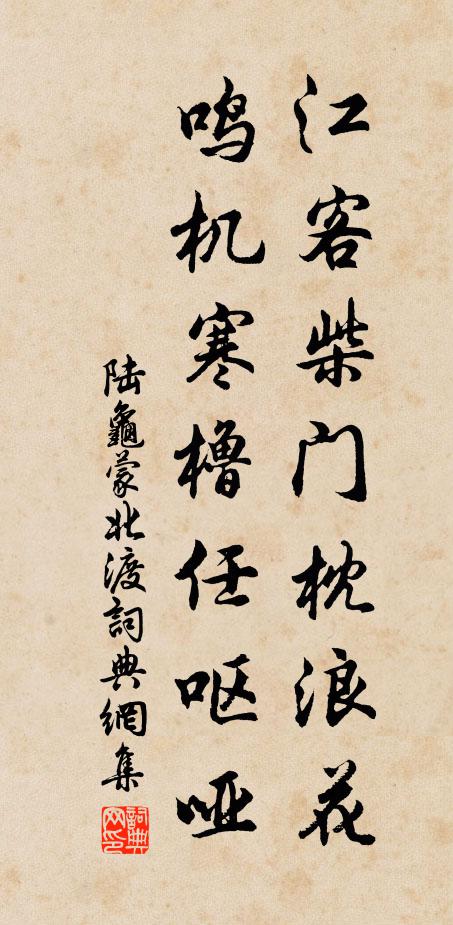 江客柴门枕浪花
鸣机寒橹任呕哑
陆龜蒙北渡詞典網集
詞典网印